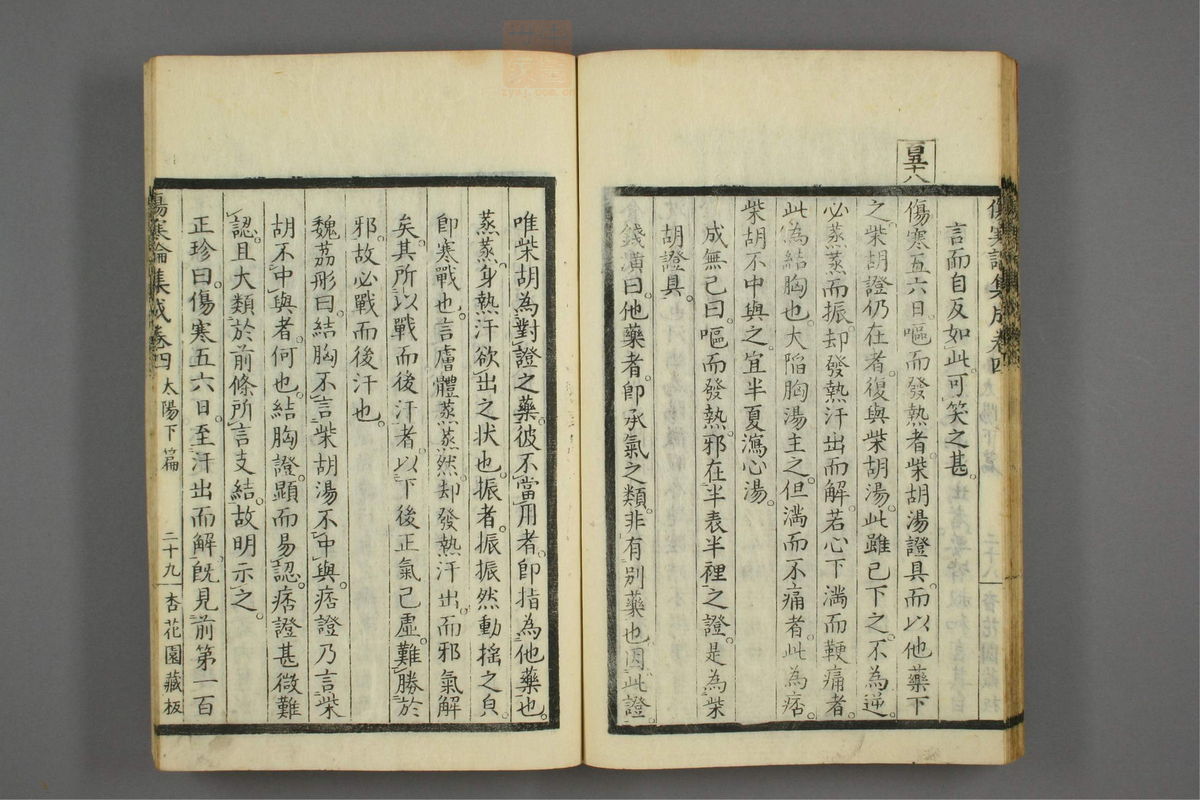 傷寒論集成卷四
百五十八
言而自反如此。可笑之甚。
傷寒五六日。嘔而發熱者。柴胡湯證具。而以他藥下
之。柴胡證仍在者。復與柴胡湯。此雖已下之。不為逆。
必蒸蒸而振。却發熱汗出而解。若心下滿而鞕痛者。
此為結胸也。大陷胸湯主之。但滿而不痛者。此為痞。
柴胡不中與之。宜半夏瀉心湯。
成無己曰。嘔而發熱。邪在半表半裡之證。是為柴
胡證具。
錢潢曰。他藥者。即承氣之類。非有別藥也。因此證
唯柴胡為對證之藥。彼不當用者。即指為他藥也。
蒸蒸。身熱汗欲出之狀也。振者。振振然動搖之皃。
即寒戰也。言膚體蒸蒸然。却發熱汗出。而邪氣解
矣。其所以戰而後汗者。以下後正氣已虛。難勝於
邪。故必戰而後汗也。
魏荔彤曰。結胸不言柴胡湯不中與。痞證乃言柴
胡不中與者。何也。結胸證顯而易認。痞證甚微難
認。且大類於前條所言支結。故明示之。
正珍曰。傷寒五六日。至汗出而解。旣見前第一百
傷寒論集成卷四 太陽下篇 二十九 杏花園藏板